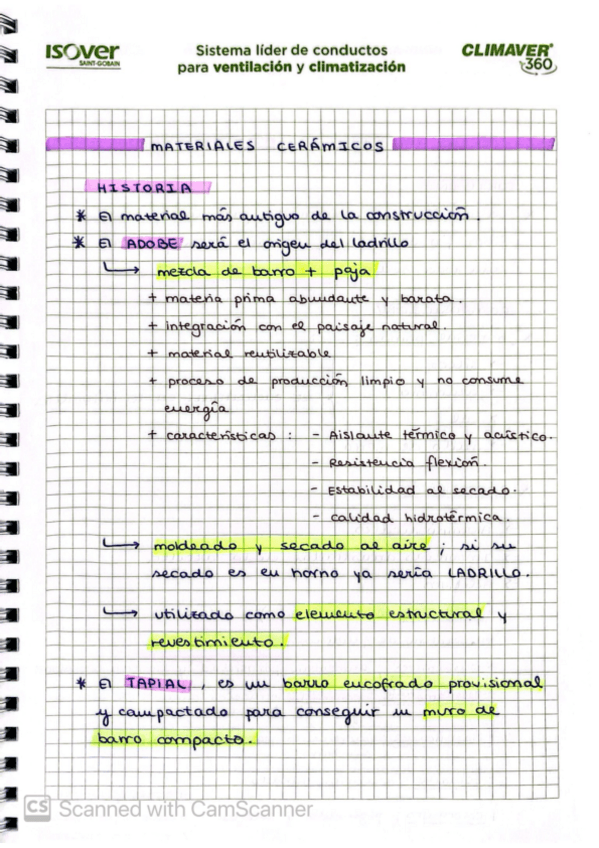 ISOVER
SAINT-GOBAIN
Sistema líder de conductos
para ventilación y climatización
CLIMAVER®
360
MATERIALES CERÁMICOS
HISTORIA
* El material más antiguo de la construcción.
* El ADOBE será el origen del ladrillo
↳ mezcla de barro + paja
+ materia prima abundante y barata.
+ integración con el paisaje natural.
+ material reutilizable
+ proceso de producción limpio y no consume
energía
+ características : - Aislante térmico y acústico.
- Resistencia flexión.
- Estabilidad al secado.
- calidad hidrotérmica.
↳ moldeado y secado al aire ; si su
secado es en horno ya sería LADRILLO.
↳ utilizado como elemento estructural y
revestimiento.
* El TAPIAL, es un barro encofrado provisional
y campactado para conseguir un muro de
barro compacto.
CS Scanned with CamScanner